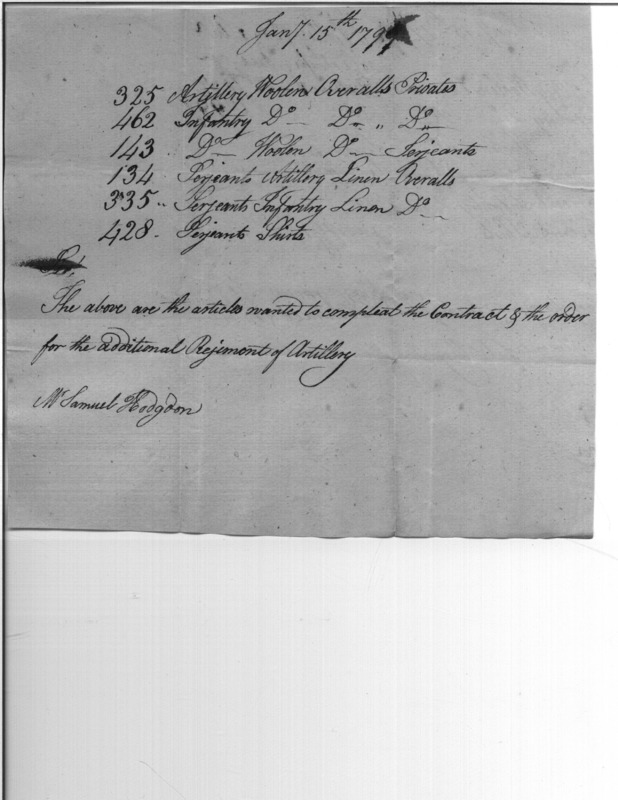 Jany. 15th 179
325 Artillery Woolen Overalls Privates
462 Infantry Do Do " Do
143 Do Woolen Do Serjeants
134 Serjeants Artillery Linen Overalls
335 " Serjeants Infantry Linen Do
428 - Serjeants Shirts
The above are the articles wanted to compleat the Contract & the order
for the additional Rejement of Artillery
Mr Samuel Hodgdon